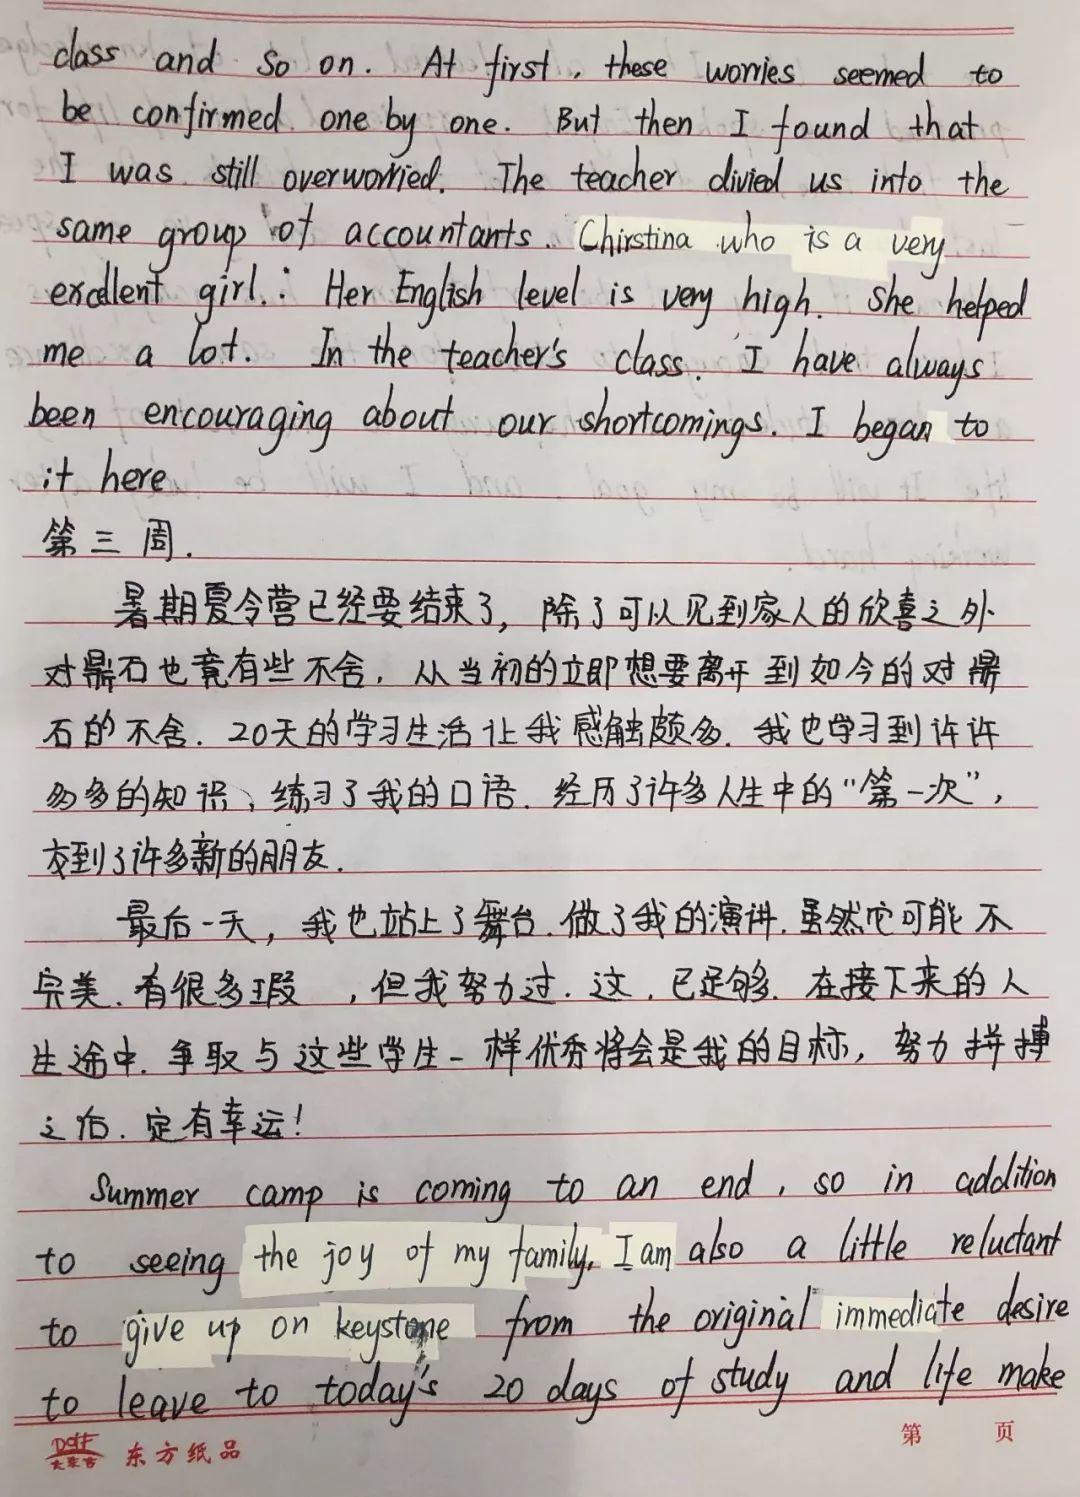 class and so on. At first, these worries seemed to
be confirmed one by one. But then I found that
I was still overworried. The teacher divied us into the
same group of accountants. Chirstina who is a very
excellent girl. Her English level is very high. She helped
me a lot. In the teacher's class. I have always
been encouraging about our shortcomings. I began to
it here
第三周.
暑期夏令营已经要结束了, 除了可以见到家人的欣喜之外
对鼎石也竟有些不舍, 从当初的立即想要离开到如今的对鼎
石的不舍. 20天的学习生活让我感触颇多. 我也学习到许许
多多的知识、练习了我的口语. 经历了许多人生中的“第一次”,
交到了许多新的朋友.
最后一天, 我也站上了舞台. 做了我的演讲. 虽然它可能不
完美. 有很多瑕 , 但我努力过. 这, 已足够. 在接下来的人
生途中. 争取与这些学生一样优秀将会是我的目标, 努力拼搏
之后. 定有幸运!
Summer camp is coming to an end, so in addition
to seeing the joy of my family. I am also a little reluctant
to give up on keystone from the original immediate desire
to leave to today's 20 days of study and life make
东方纸品
第 页